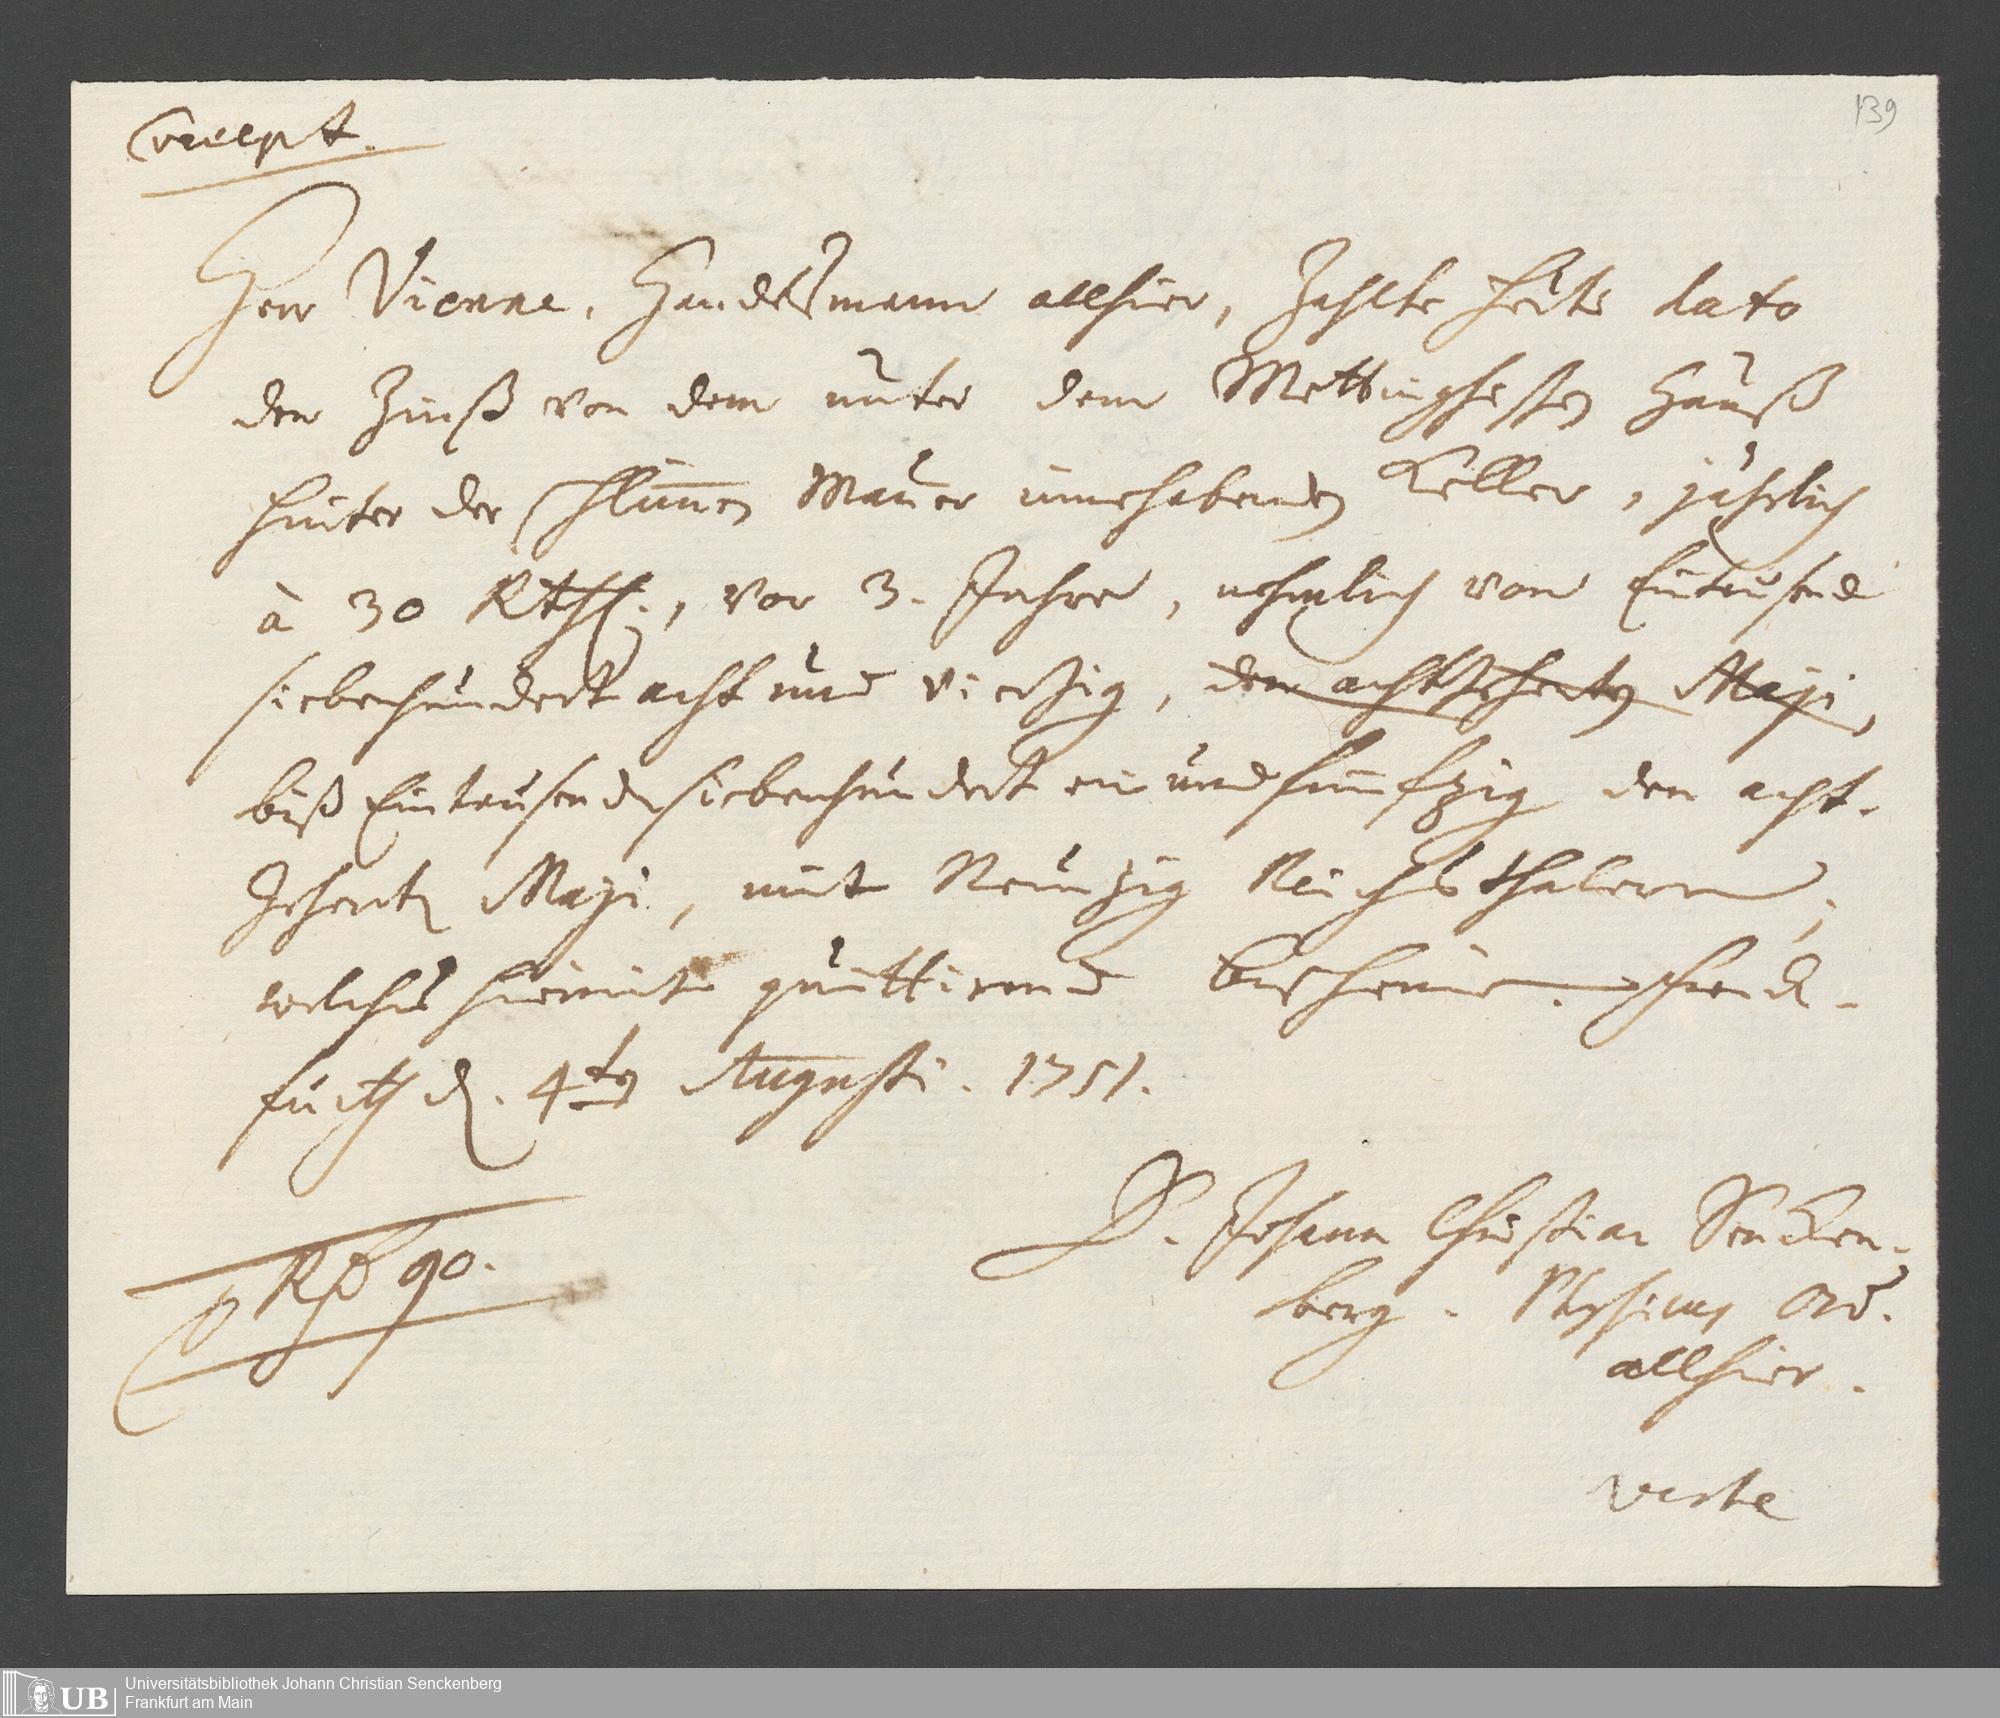 139
Concept.
Herr Vienne, Handelßmann allhier, zahlte heüte dato
den Zinß von dem unter dem Mettinghischen Hauß
hinter der schlimmen Mauer innehabenden Keller, jährlich
à 30 Rthlr., vor 3. Jahre, nehmlich von Eintausend
siebenhundert acht und vierzig, den achtzehenten Maji,
biß Eintausendsiebenhundert ein und funfzig den acht-
zehenten Maji, mit Neunzig Reichsthalern;
welches hiemit quittirend bescheinige. Franck-
furth d. 4ten Augusti. 1751.
D. Johann Christian Sencken-
berg. Physicus Ord.
allhier.
90.
verte
Universitätsbibliothek Johann Christian Senckenberg
Frankfurt am Main
UB